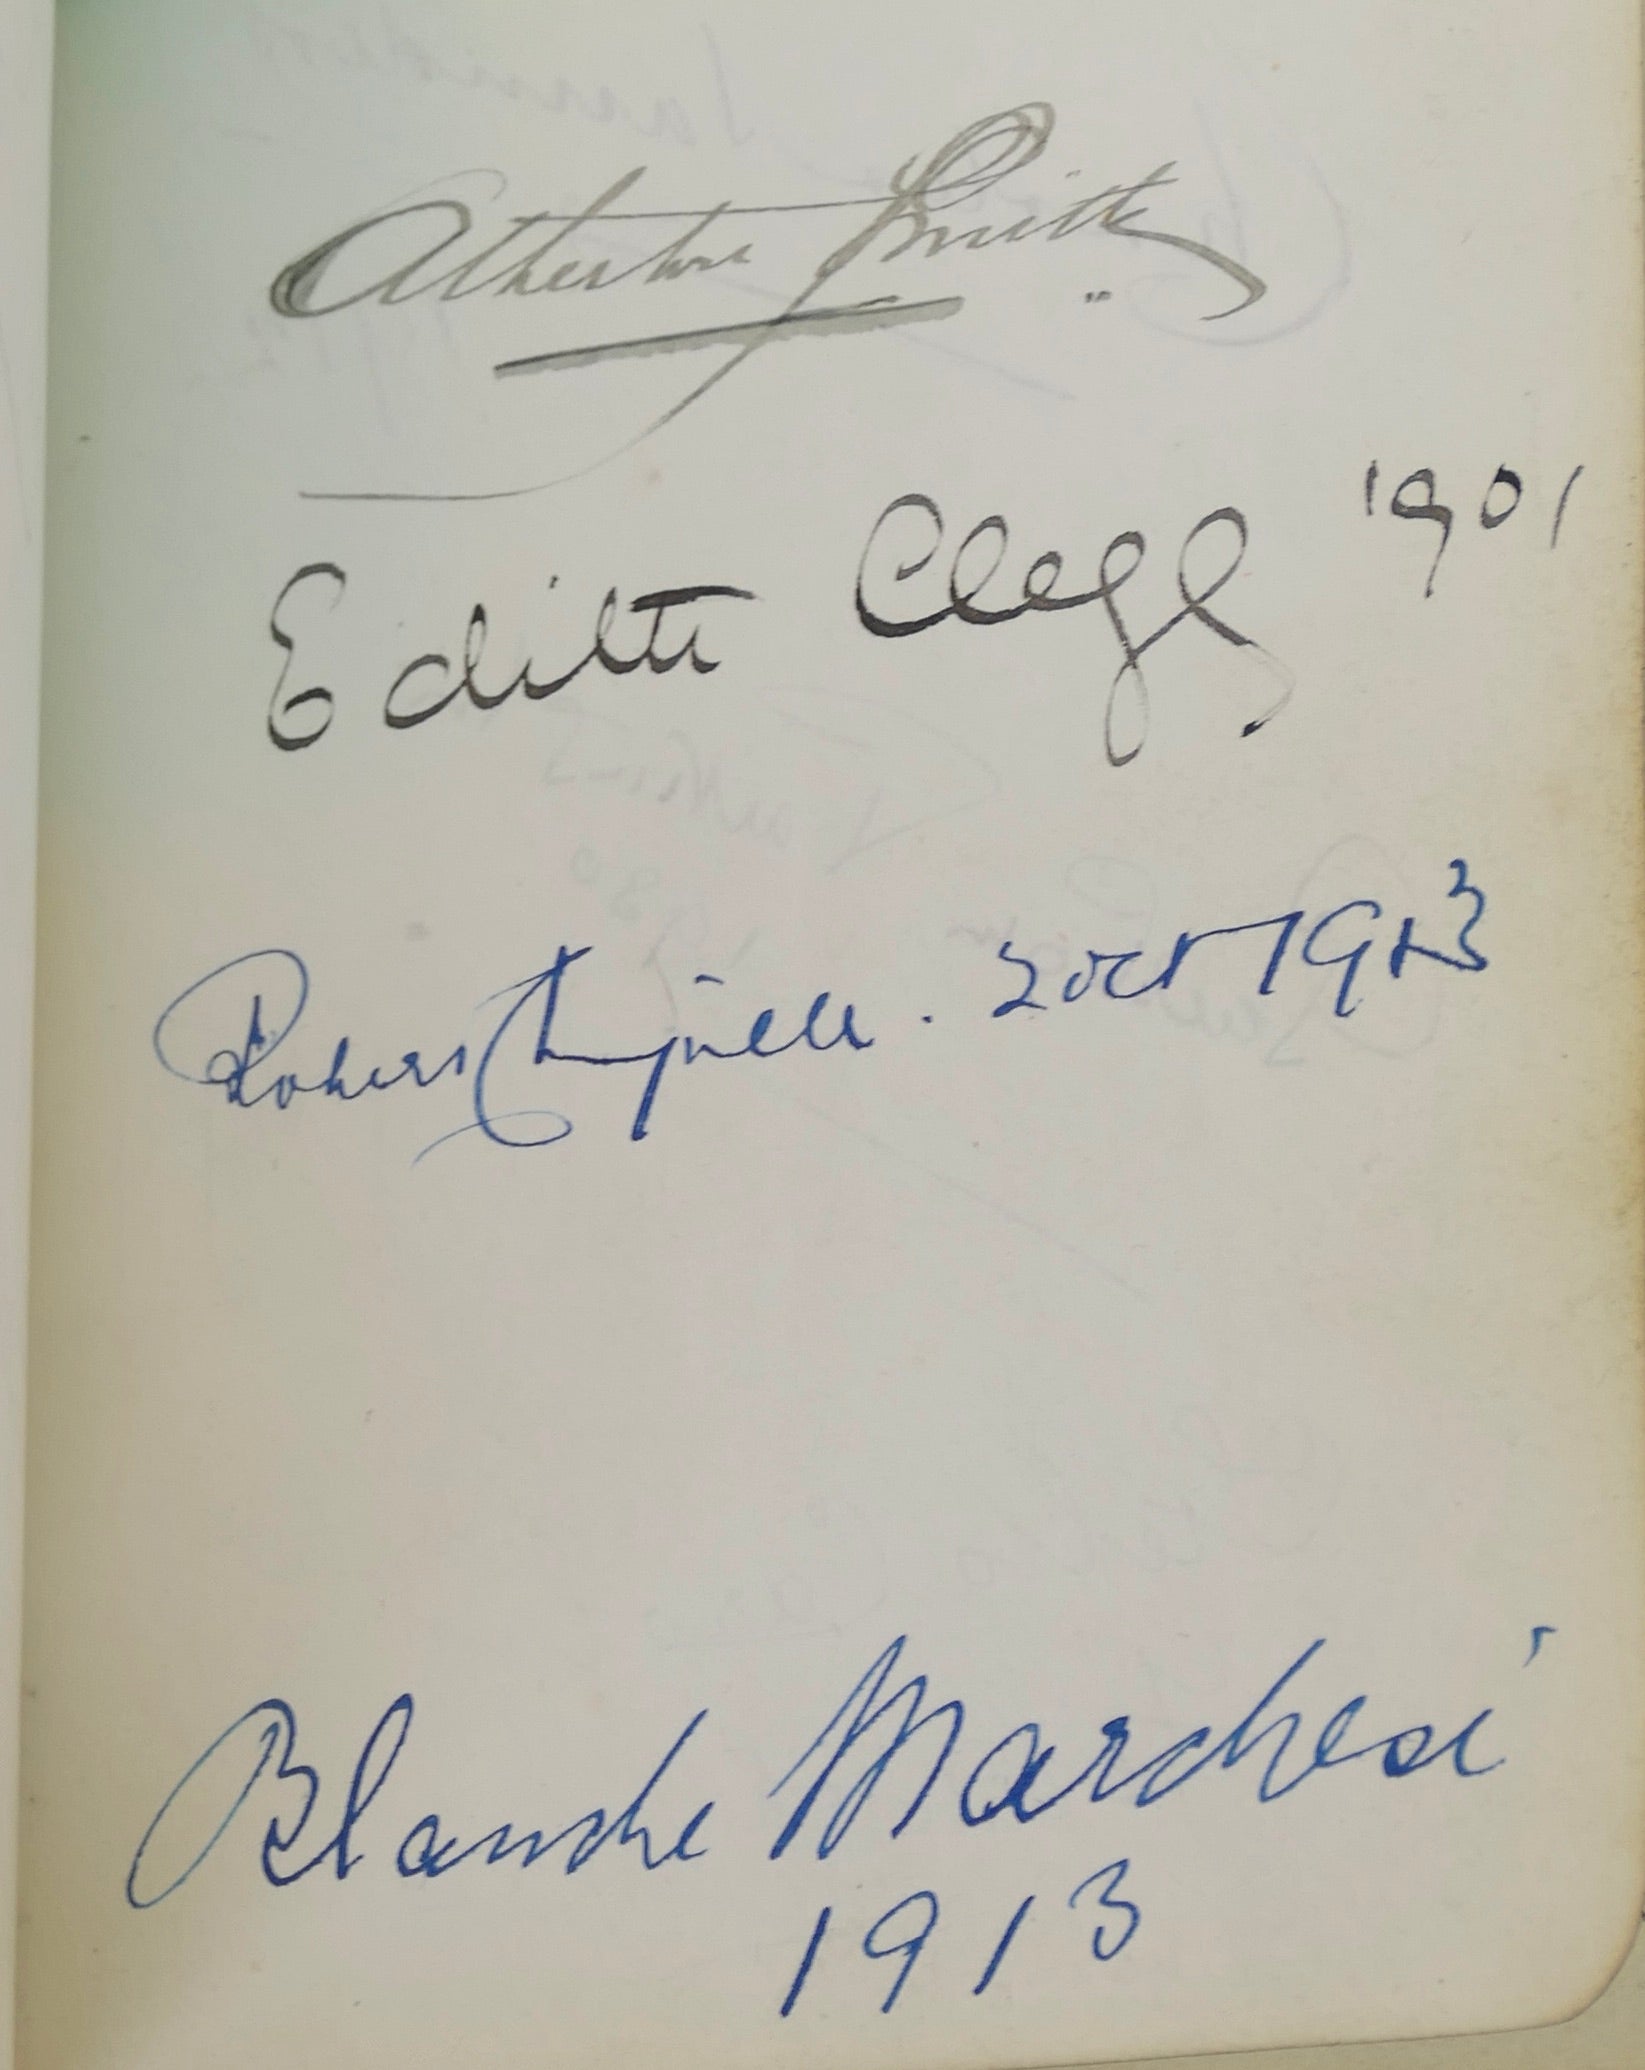 Atherton Smith
Edith Clegg 1901
Robert . 2 Oct 1913
Blanche Marchesi
1913